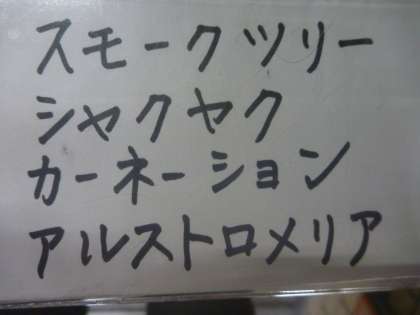 スモークツリー
シャクヤク
カーネーション
アルストロメリア